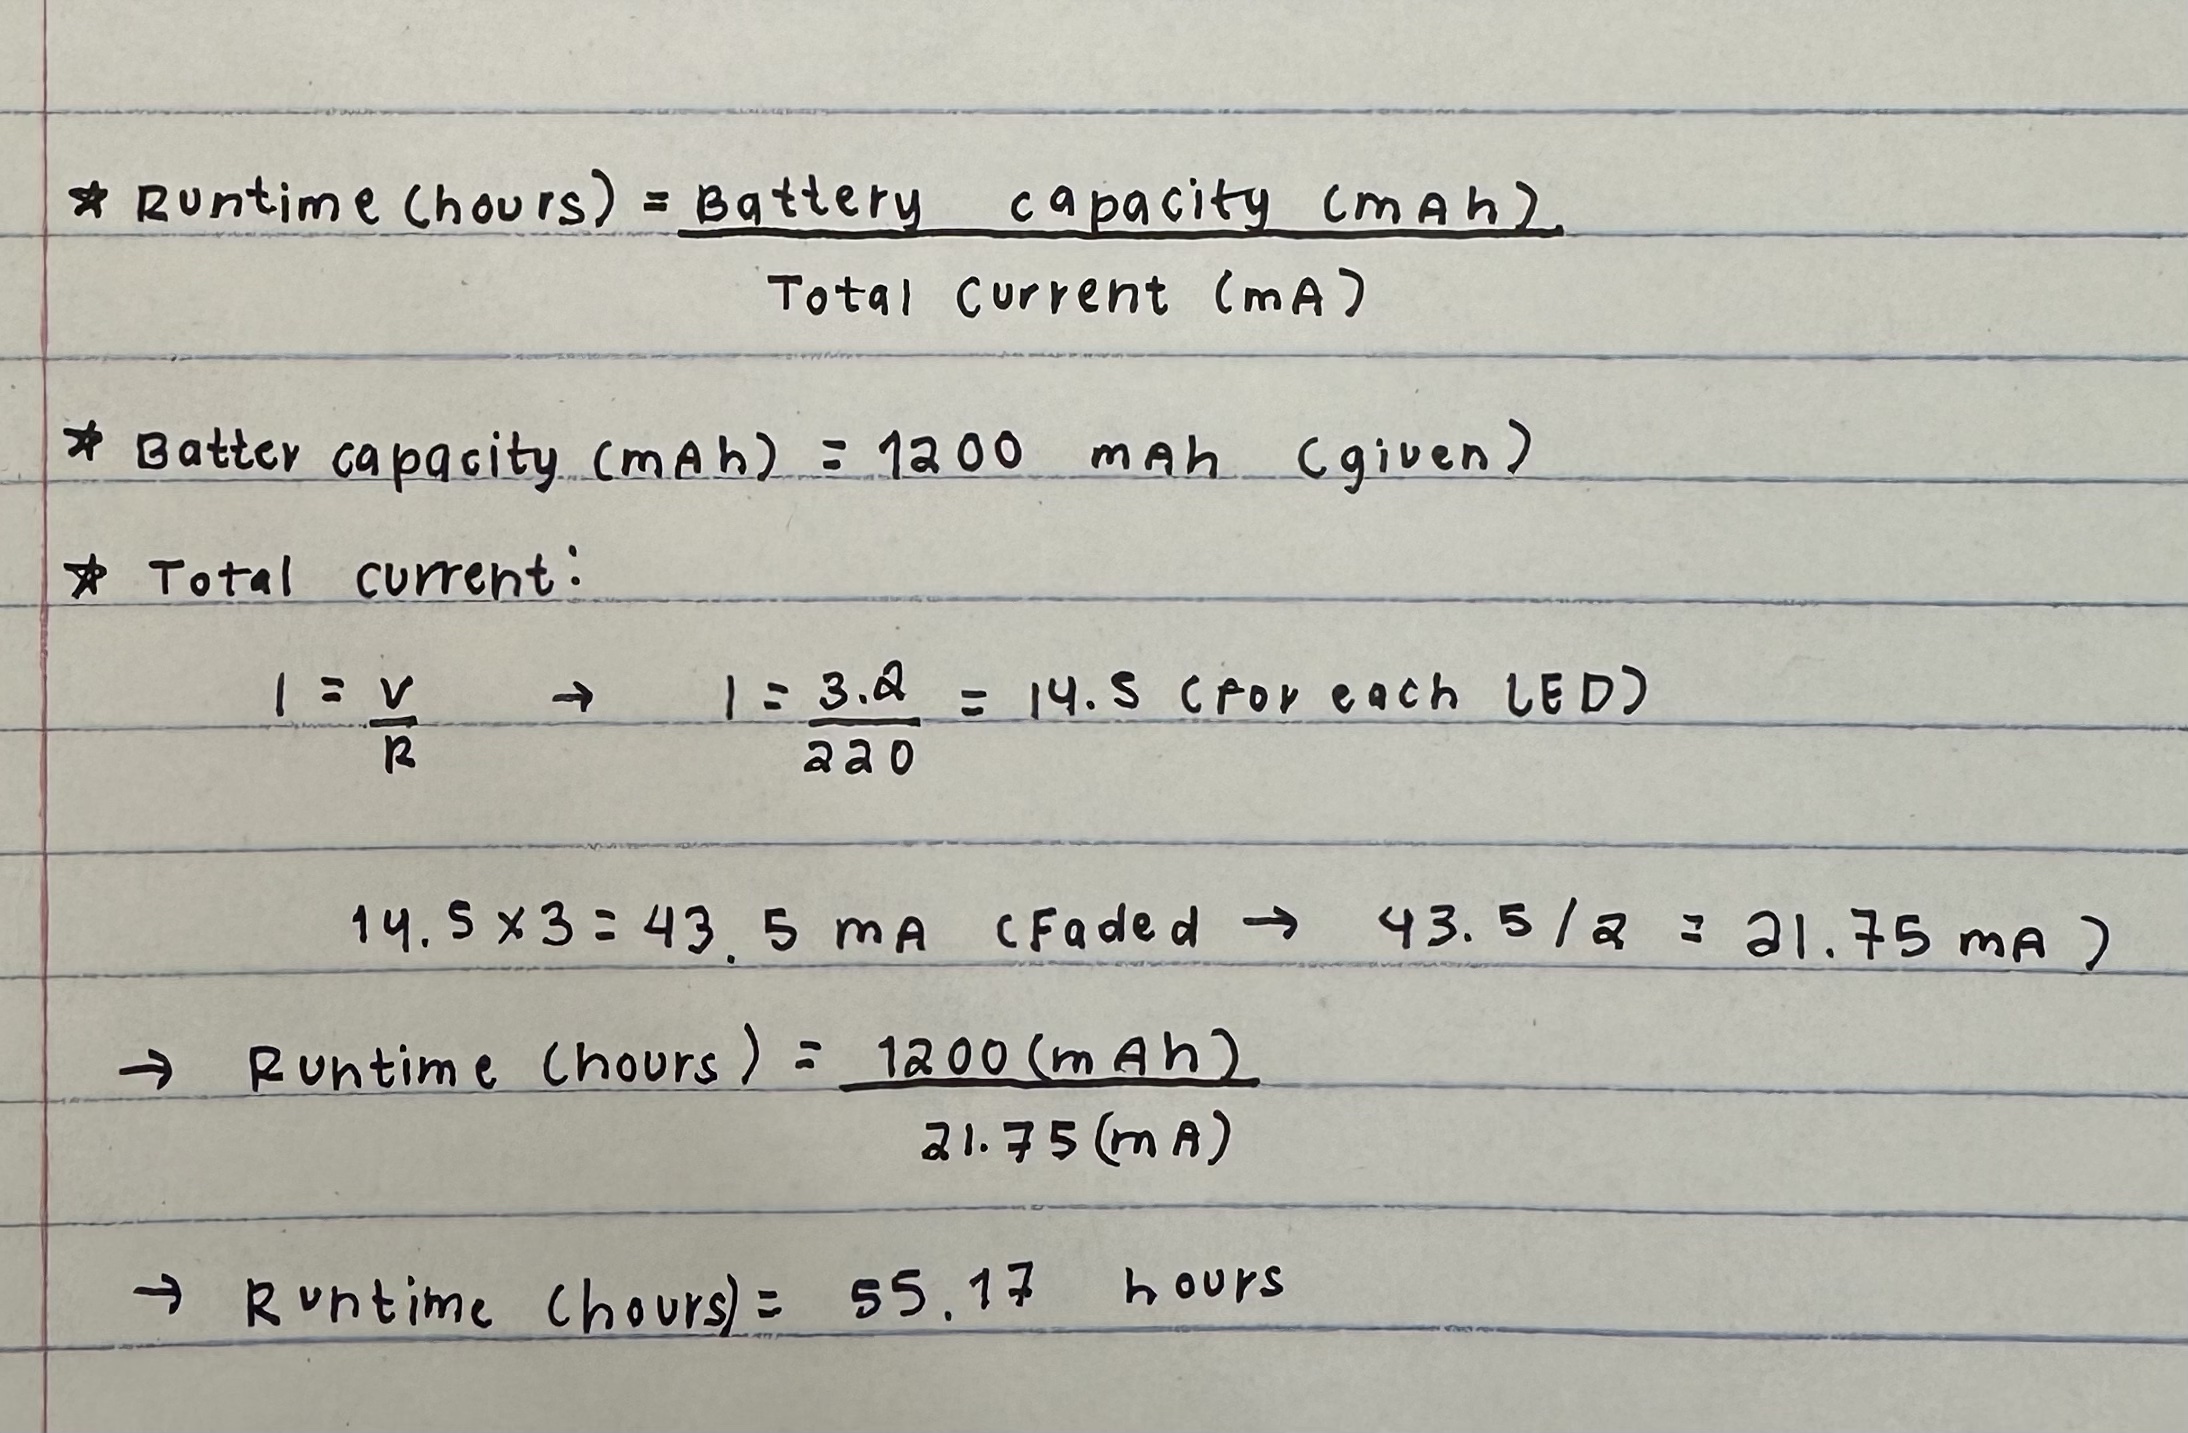 * Runtime (hours) = Battery capacity (mAh)
Total current (mA)
* Batter capacity (mAh) = 1200 mAh (given)
* Total current:
I = V → I = 3.2 = 14.5 (for each LED)
R 220
14.5 x 3 = 43.5 mA (Faded → 43.5 / 2 = 21.75 mA)
→ Runtime (hours) = 1200 (mAh)
21.75 (mA)
→ Runtime (hours) = 55.17 hours